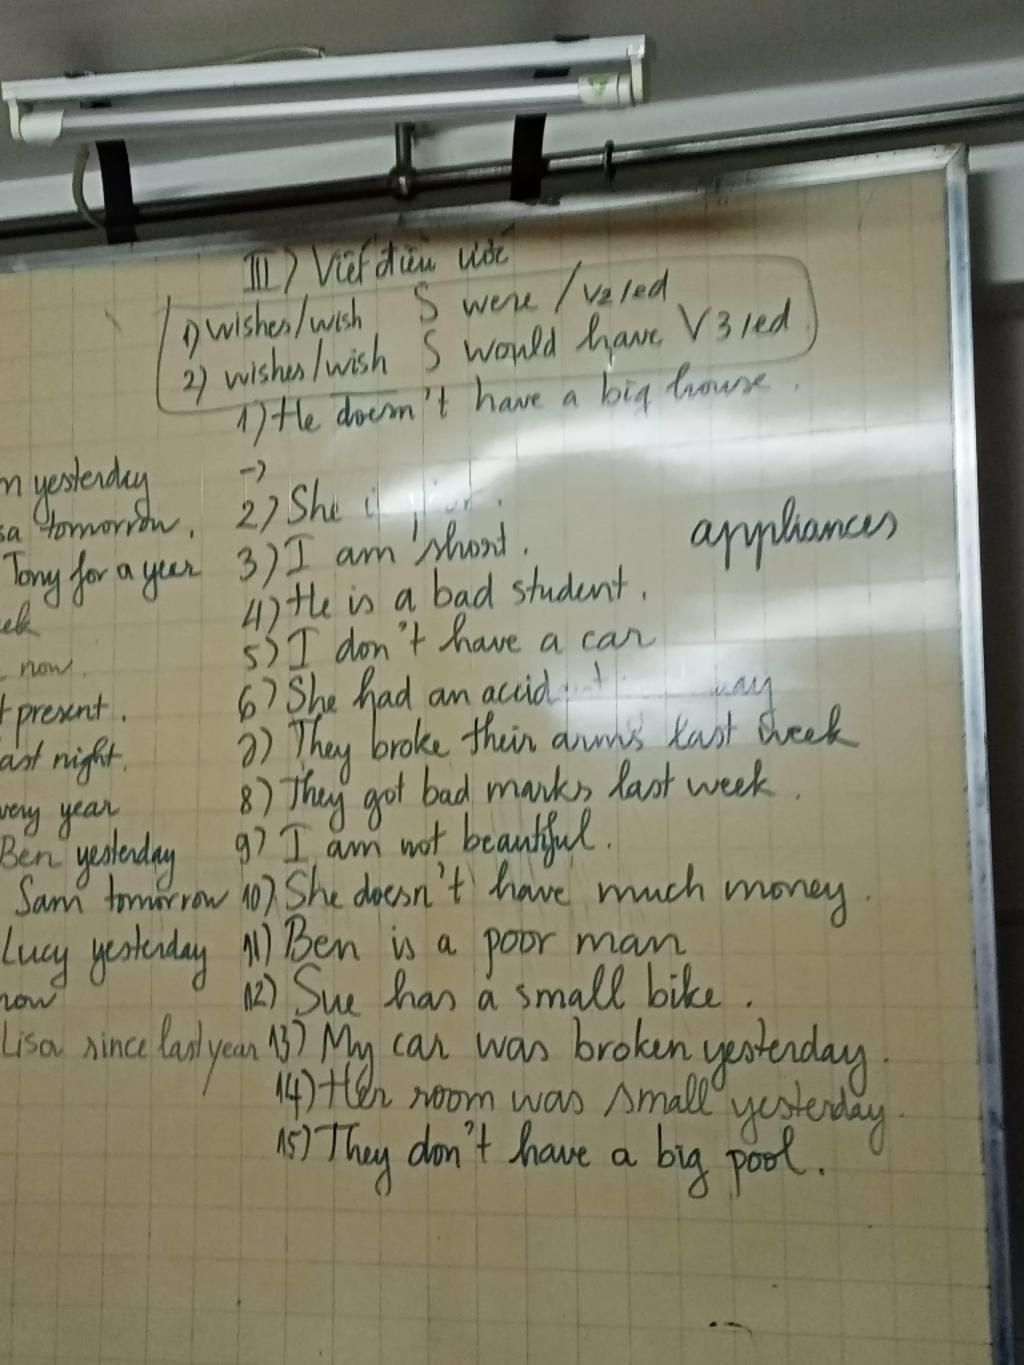 III) Viết điều ước
1) wishes/wish S were / V2/ed
2) wishes/wish S would have V3/ed
1) He doesn't have a big house.
->
yesterday
2) She
tomorrow.
appliances
Tony for a year
3) I am short.
4) He is a bad student.
now.
5) I don't have a car
present.
6) She had an
night.
7) They broke their arms last week
year
8) They got bad marks last week.
Ben yesterday
9) I am not beautiful.
Sam tomorrow
10) She doesn't have much money.
Lucy yesterday
11) Ben is a poor man
now
12) Sue has a small bike.
Lisa since last year
13) My car was broken yesterday.
14) Her room was small yesterday.
15) They don't have a big pool.